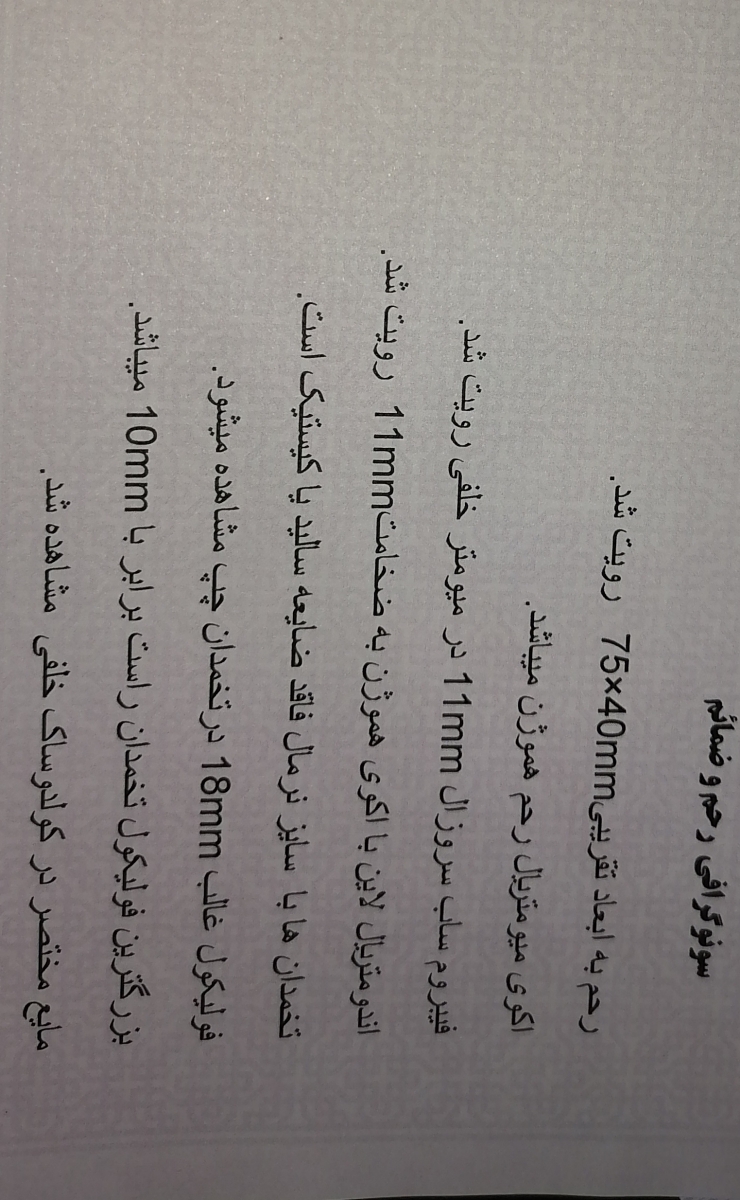 سونوگرافی رحم و ضمائم
رحم به ابعاد تقریبی75×40mm رویت شد.
اکوی میومتریال رحم هموژن میباشد.
فیبروم ساب سروزال 11mm در میومتر خلفی رویت شد.
اندومتریال لاین با اکوی هموژن به ضخامت11mm رویت شد.
تخمدان ها با سایز نرمال فاقد ضایعه سالید یا کیستیک است.
فولیکول غالب 18mm درتخمدان چپ مشاهده میشود.
بزرگترین فولیکول تخمدان راست برابر با 10mm میباشد.
مایع مختصر در کولدوساک خلفی مشاهده شد.